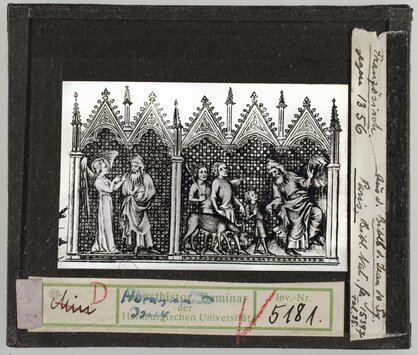 Französisch
gegen 1356
Aus d. Bibel d. Jean de Sy
Paris, Bibl. Nat. fr. 15397
Min D
Kunsthistor. Seminar
der
Hamburgischen Universität
Inv.-Nr.
5181.